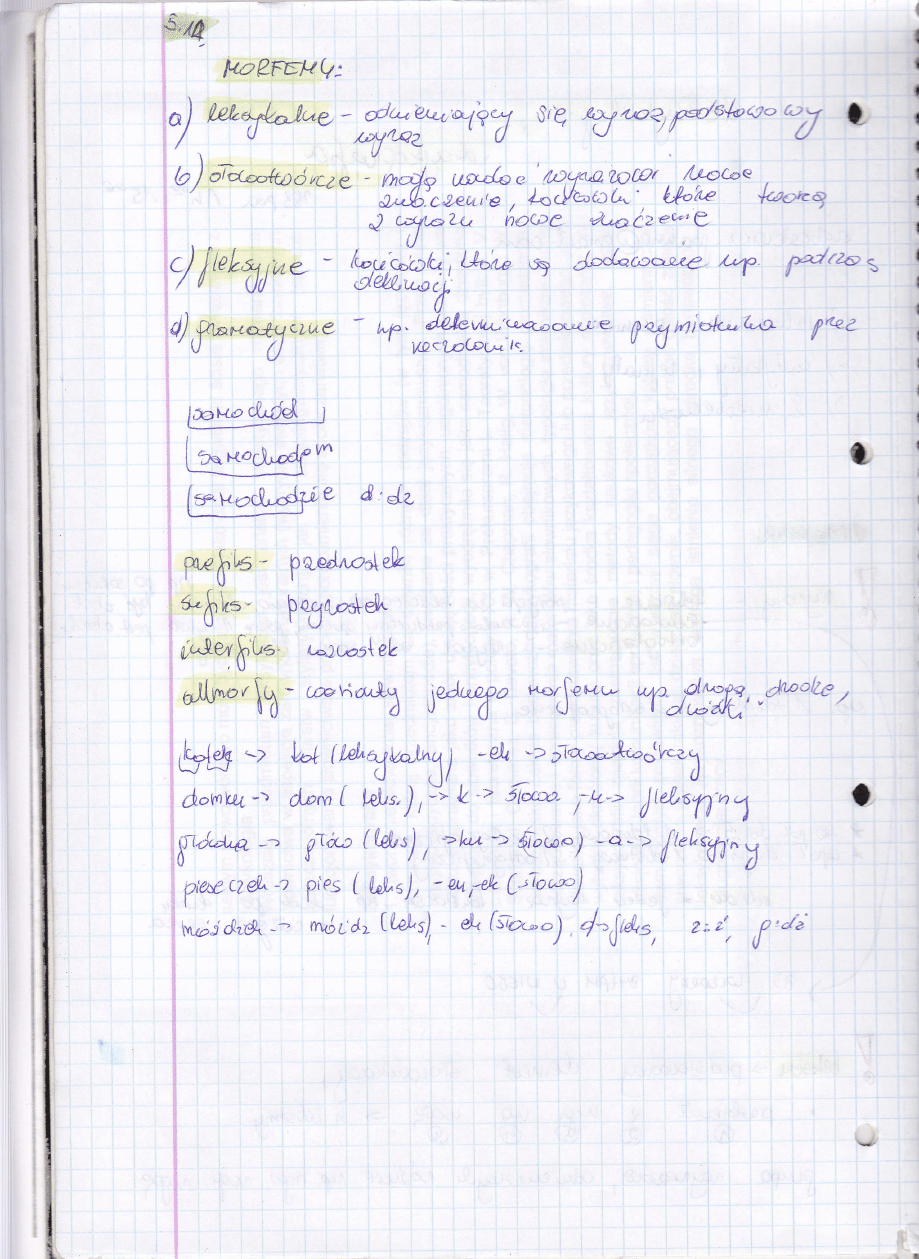 5.12.
MORFEMY:
a) leksykalne - odmieniający się wyraz, podstawowy
wyraz
b) słowotwórcze - mogą nadać wyrazowi nowe
znaczenie, końcówki, które tworzą
z wyrazu nowe znaczenie
c) fleksyjne - końcówki, które są dodawane np. podczas
deklinacji
d) gramatyczne - np. determinowanie przymiotnika przez
rzeczownik.
samochód
samochodom
samochodzie d:dz
prefiks - przedrostek
sufiks - przyrostek
interfiks - wrostek
allmorfy - warianty jednego morfemu np. droga, drodze,
dróżki.
kotek -> kot (leksykalny) -ek -> słowotwórczy
domku -> dom (leks.), -> k -> słowo, -u -> fleksyjny
główka -> głów (leks), -> k -> słowo) -a -> fleksyjny
pieseczek -> pies (leks), -ecz, -ek (słowo)
móżdżek -> móżdż (leks), - ek (słowo), fleks, z:ż, g:dż